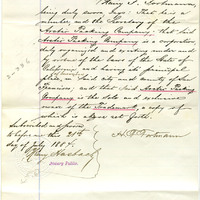 Henry F. Fortmann
being duly sworn says: That he is a
member, and the Secretary of the
Arctic Packing Company; that said
Arctic Packing Company is a corporation
duly organized and existing under and
by virtue of the laws of the State of
California and having its principal
place, in said city and county of San
Francisco, and that said Arctic Packing
Company is the sole and exclusive
owner of the Trademark, a copy of
which is above set forth.
Subscribed and sworn
to before me this 21st
day of July 1884.
H. F. Fortmann
Notary Public.